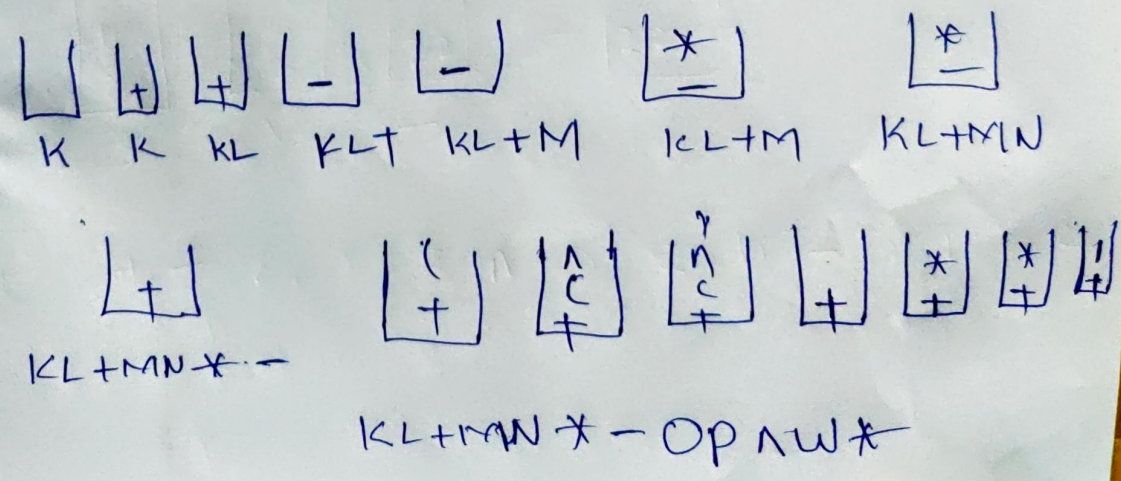 + + - - * - * -
K K KL KLT KL+M KL+M KL+MN
+ ( + ^ ( + ^ ( + + * + * + / +
KL+MN*-
KL+MN*-OP^W*